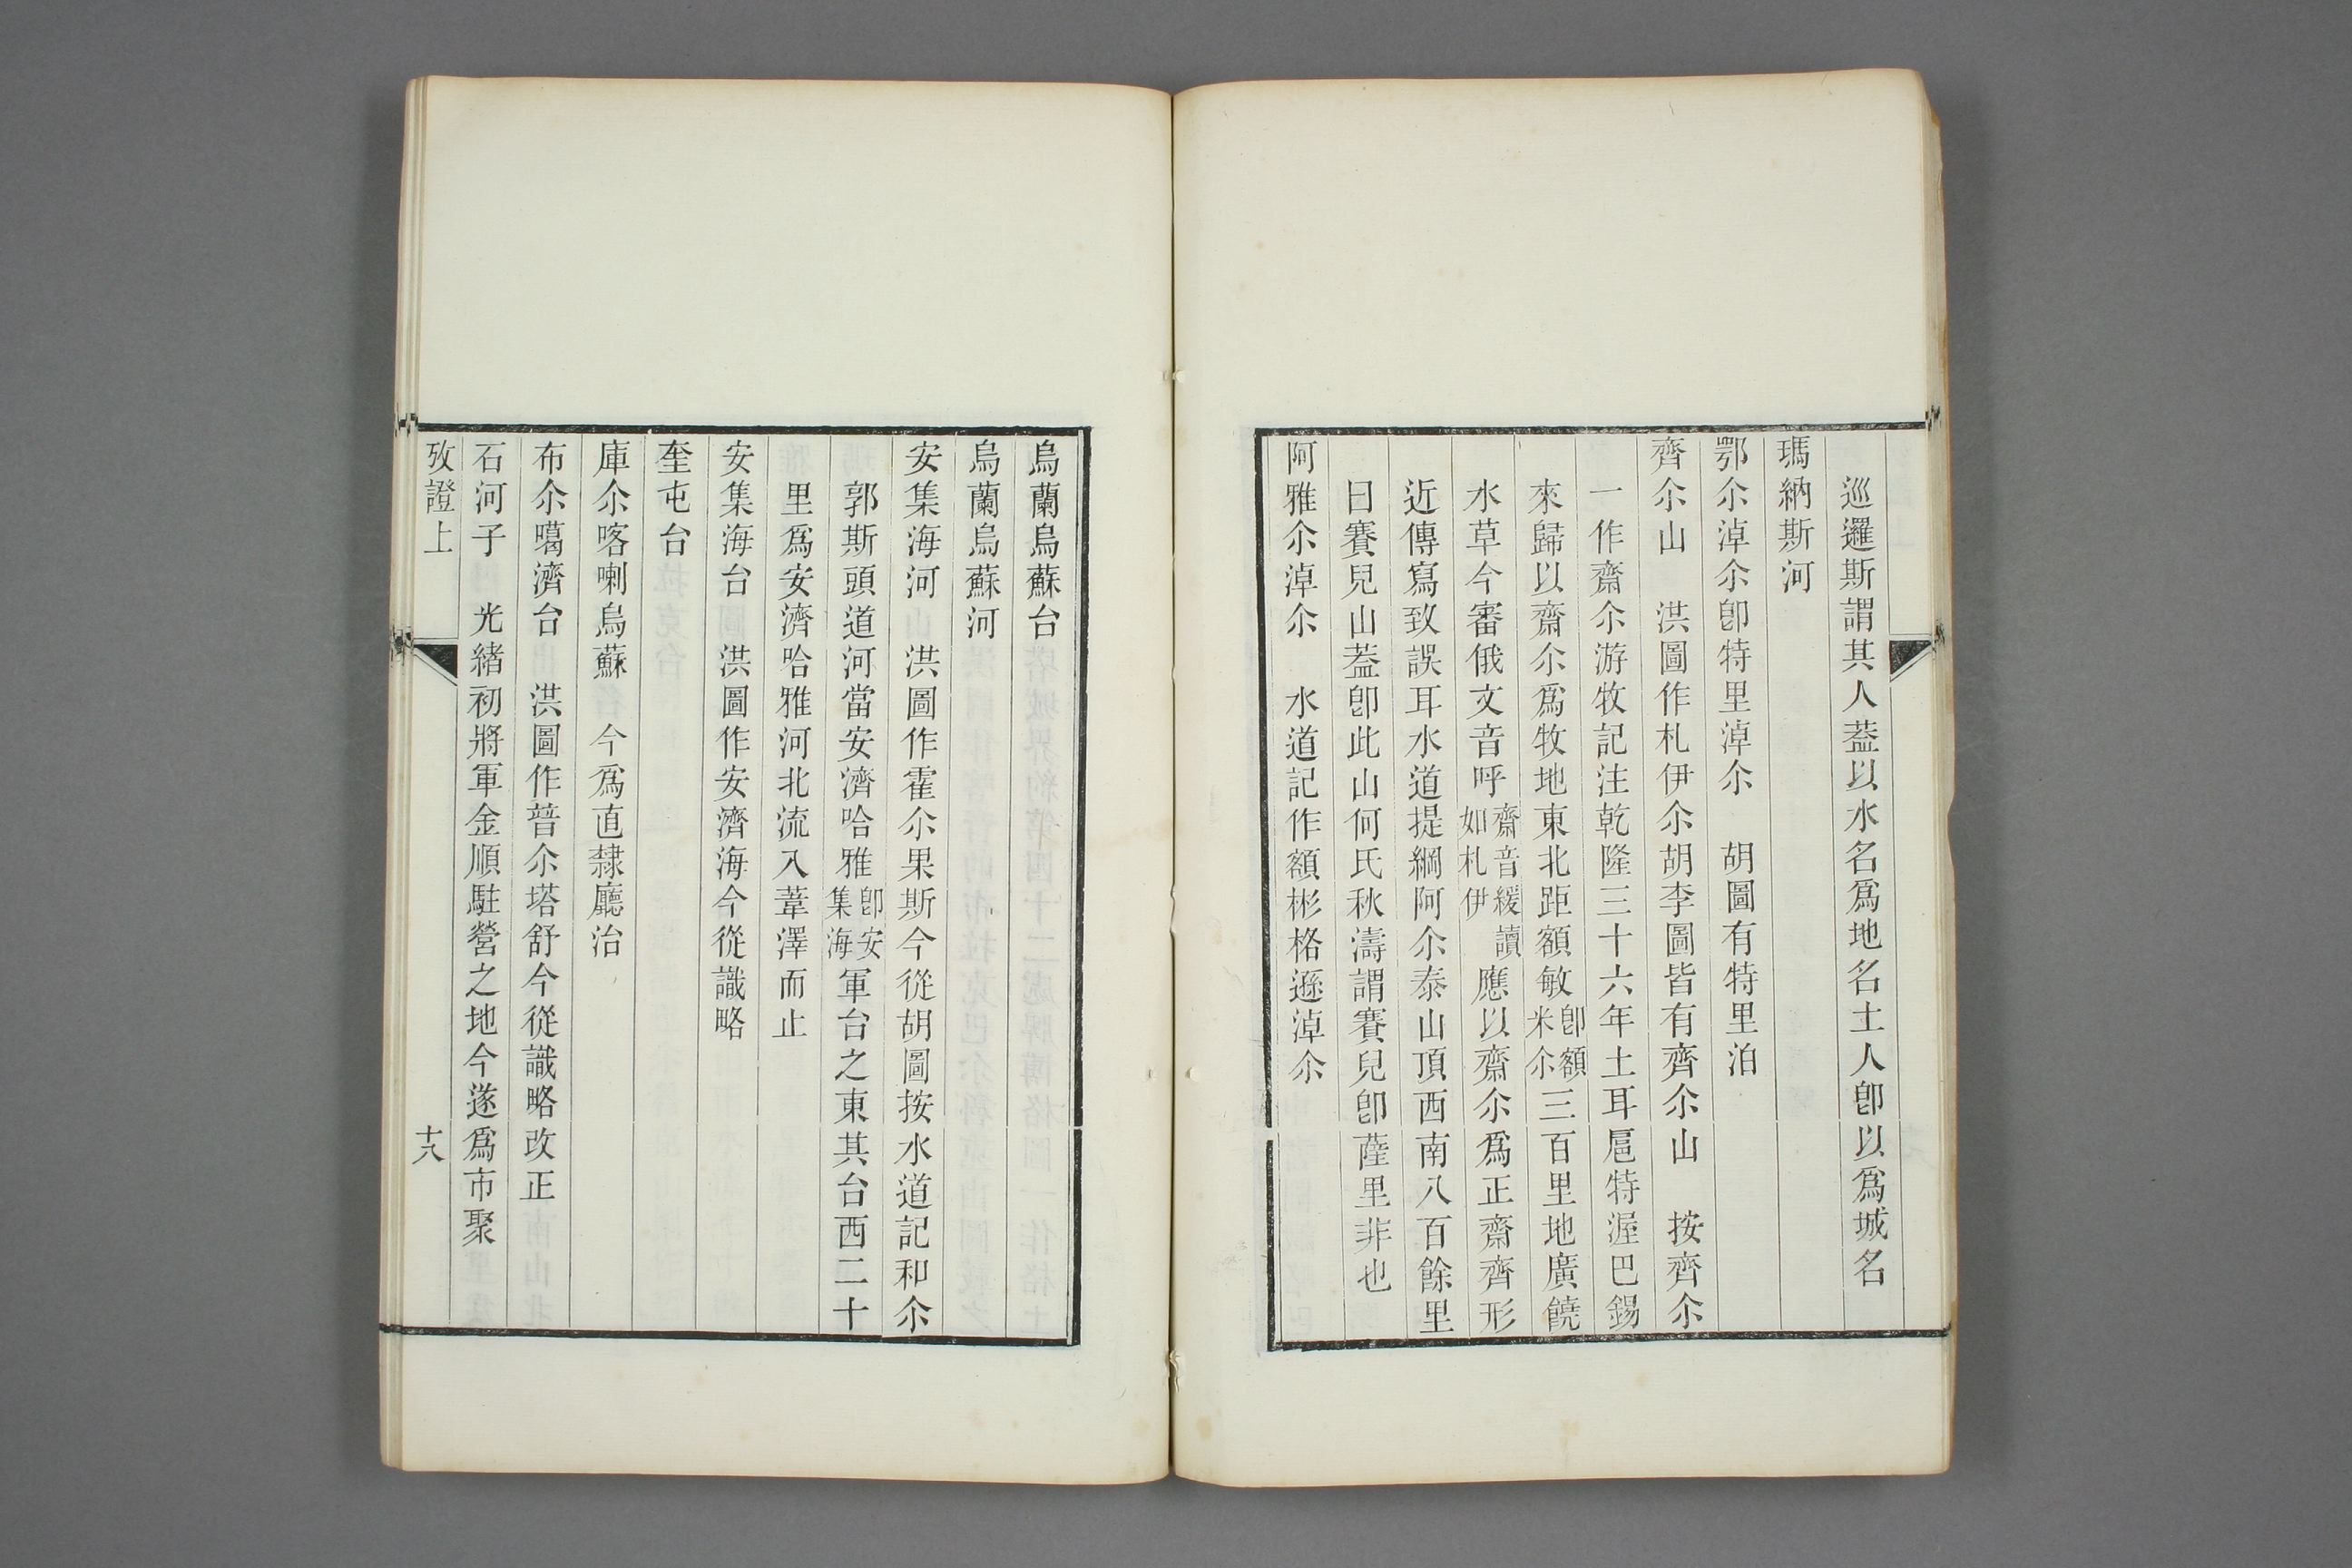 巡邏斯謂其人葢以水名爲地名土人卽以爲城名
瑪納斯河
鄂尒淖尒卽特里淖尒　胡圖有特里泊
齊尒山　洪圖作札伊尒胡李圖皆有齊尒山　按齊尒
一作齋尒游牧記注乾隆三十六年土耳扈特渥巴錫
來歸以齋尒爲牧地東北距額敏卽額米尒三百里地廣饒
水草今審俄文音呼齋音緩讀如札伊應以齋尒爲正齋齊形
近傳寫致誤耳水道提綱阿尒泰山頂西南八百餘里
曰賽兒山葢卽此山何氏秋濤謂賽兒卽薩里非也
阿雅尒淖尒　水道記作額彬格遜淖尒
烏蘭烏蘇台
烏蘭烏蘇河
安集海河　洪圖作霍尒果斯今從胡圖按水道記和尒
郭斯頭道河當安濟哈雅卽安集海軍台之東其台西二十
里爲安濟哈雅河北流入葦澤而止
安集海台　洪圖作安濟海今從識略
奎屯台
庫尒喀喇烏蘇　今爲直隸廳治
布尒噶濟台　洪圖作普尒塔舒今從識略改正
石河子　光緒初將軍金順駐營之地今遂爲市聚
攷證上
十八